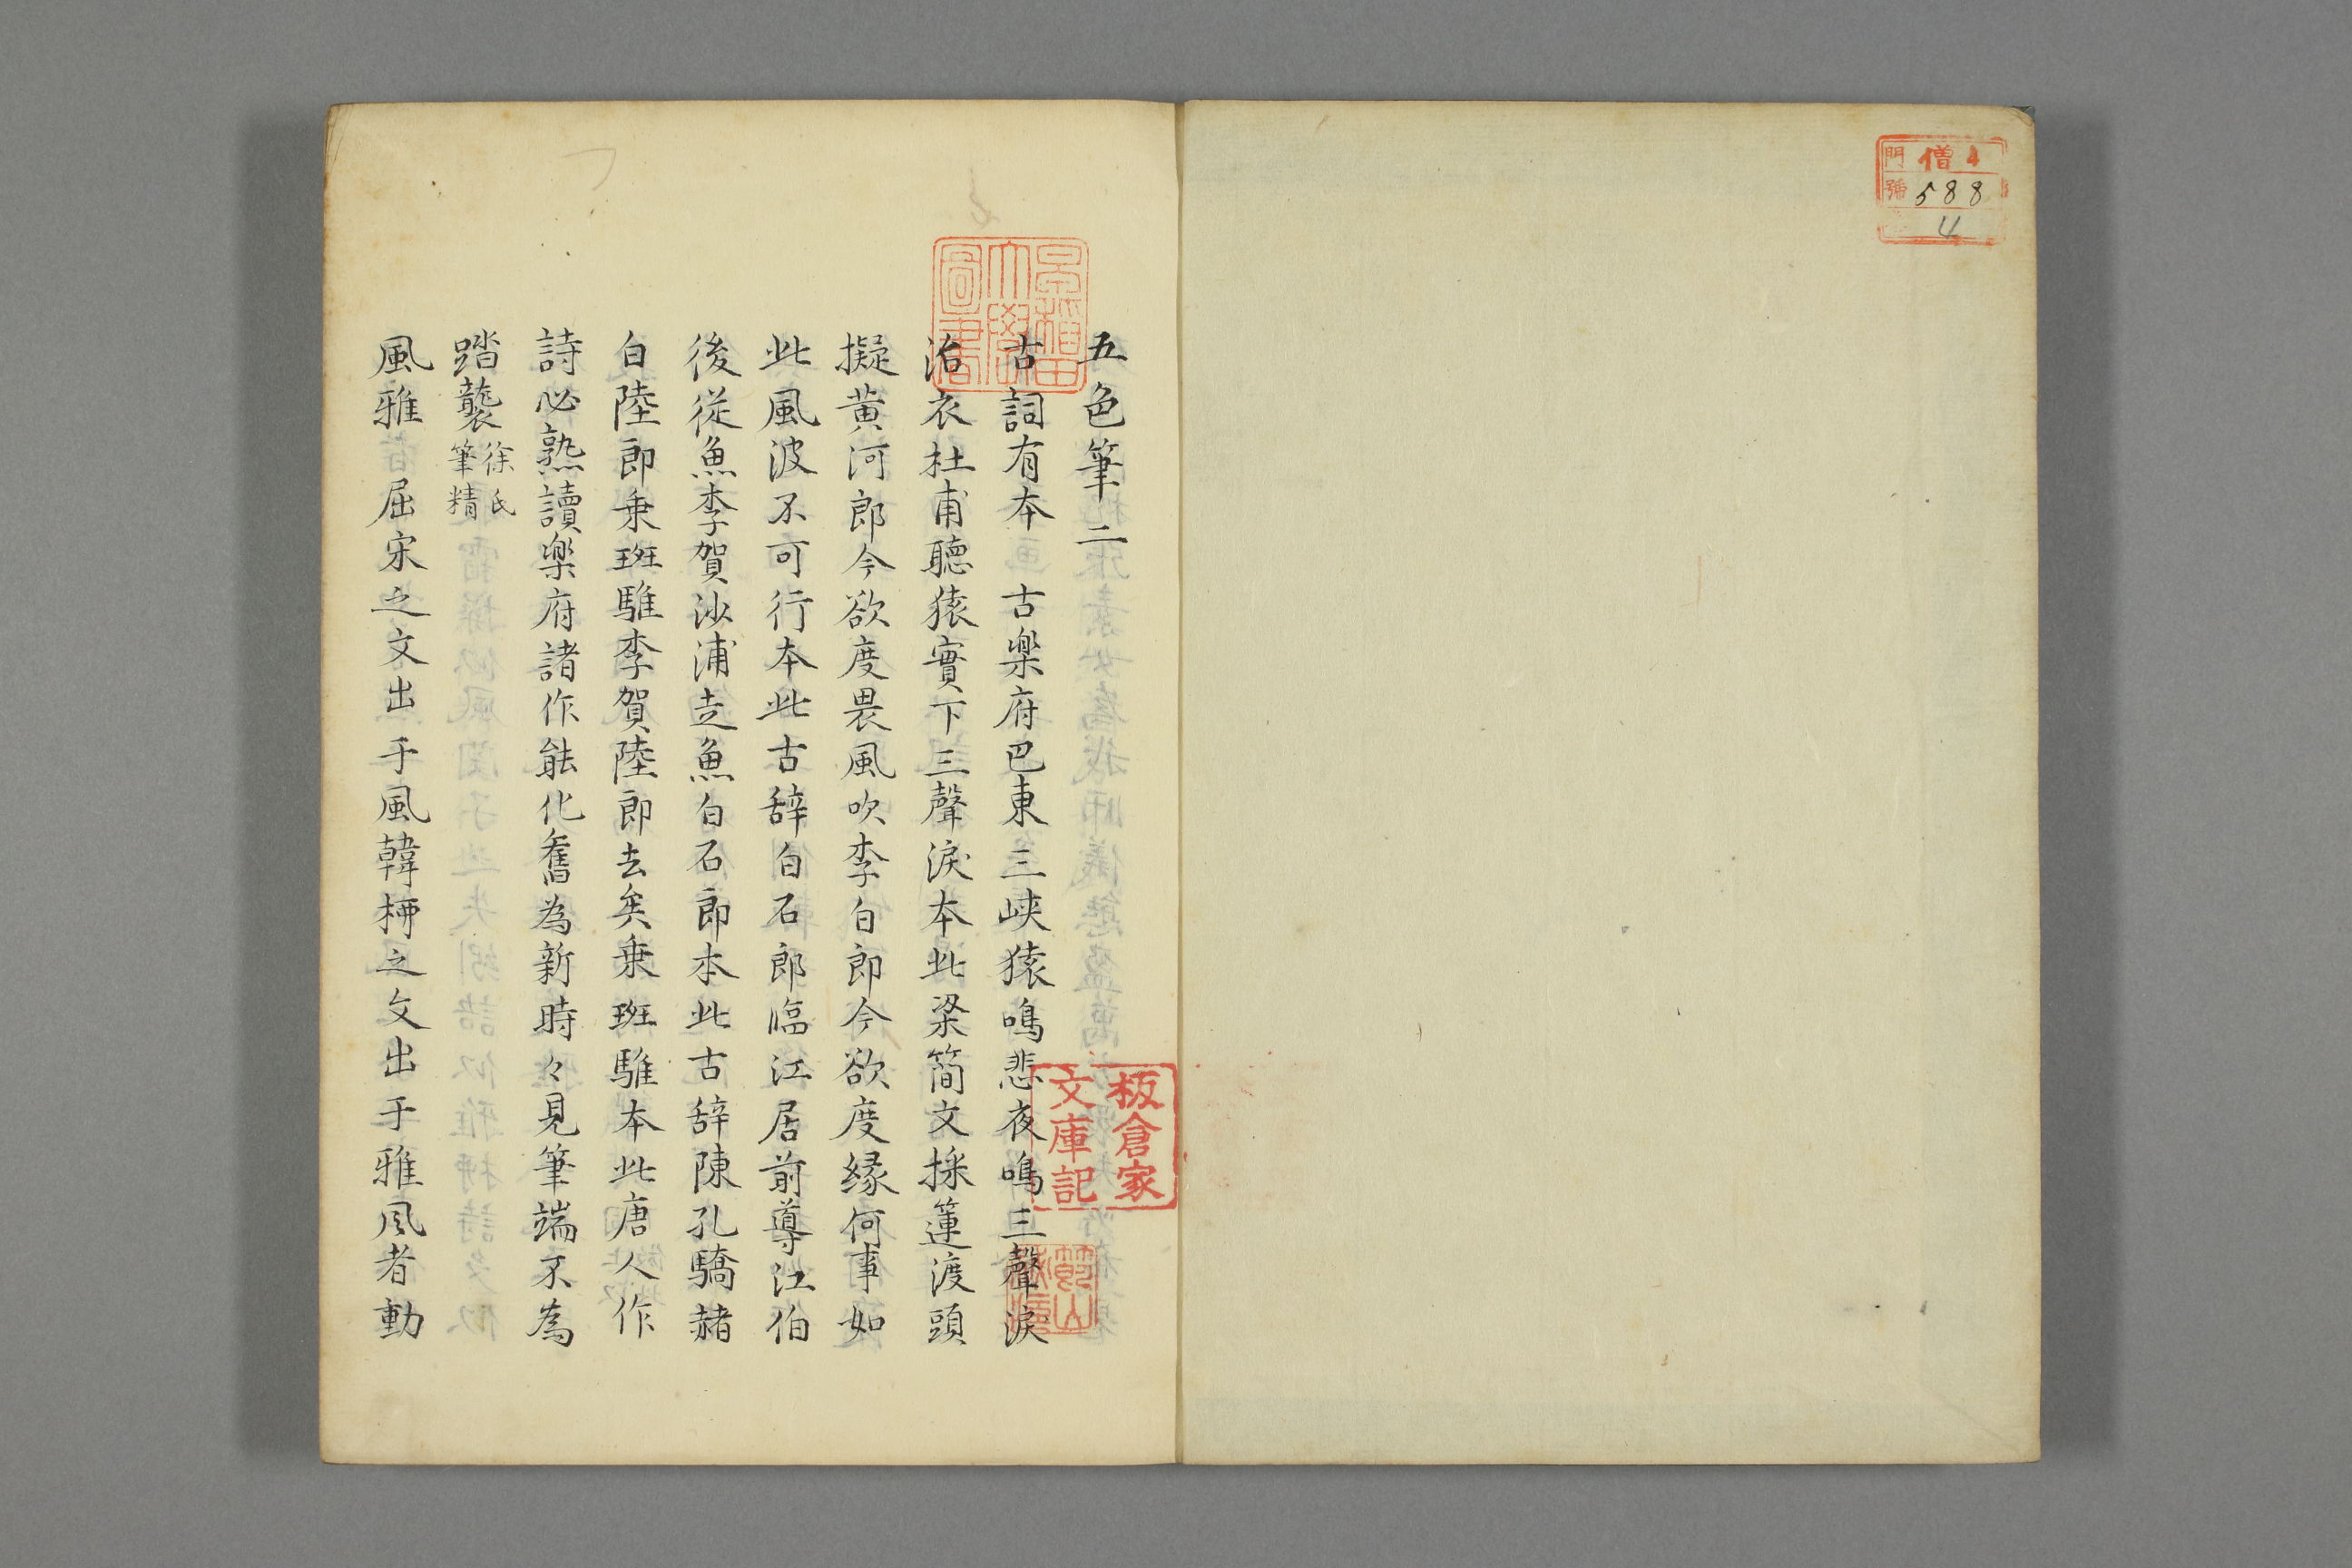 門 僧4
號 588
4
五色筆二
早稲田大學圖書
古詞有本 古楽府巴東三峡猿鳴悲夜鳴三聲淚
沾衣杜甫聽猿實下三聲淚本此梁簡文採蓮渡頭
擬黄河郎今欲度畏風吹李白郎今欲度縁何事如
此風波不可行本此古辞白石郎臨江居前導江伯
後從魚李賀沙浦走魚白石郎本此古辞陳孔驕赭
白陸郎乗班騅李賀陸郎去矣乗班騅本此唐人作
詩必熟讀楽府諸作能化舊為新時々見筆端不為
踏襲徐氏
筆精
風雅 屈宋之文出于風韓柳之文出于雅風者動
板倉家
文庫記